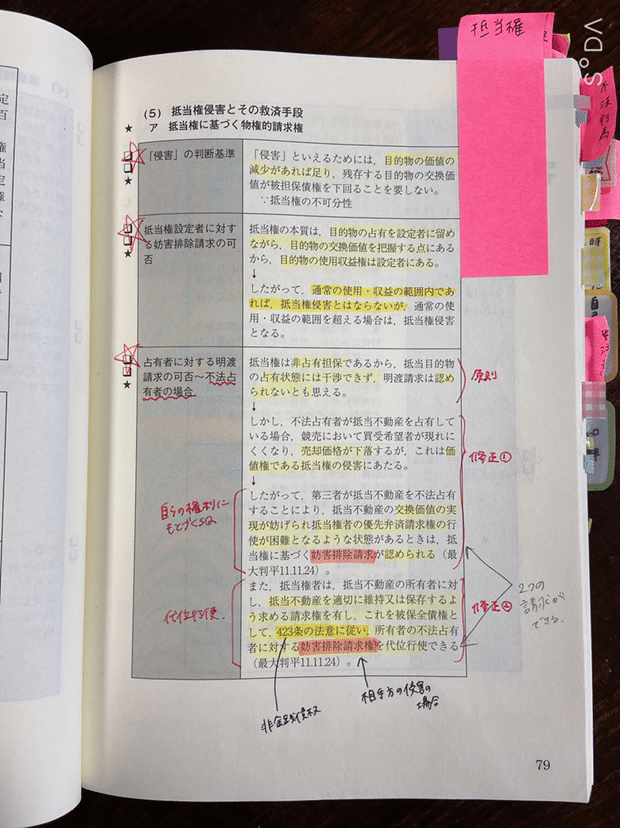 抵当権
SODA
(5) 抵当権侵害とその救済手段
★ ア 抵当権に基づく物権的請求権
「侵害」の判断基準
★
「侵害」といえるためには，目的物の価値の
減少があれば足り，残存する目的物の交換価
値が被担保債権を下回ることを要しない。
∵抵当権の不可分性
抵当権設定者に対す
る妨害排除請求の可
否
★
抵当権の本質は，目的物の占有を設定者に留め
ながら，目的物の交換価値を把握する点にある
から，目的物の使用収益権は設定者にある。
↓
したがって，通常の使用・収益の範囲内であ
れば，抵当権侵害とはならないが，通常の使
用・収益の範囲を超える場合は，抵当権侵害
となる。
占有者に対する明渡
請求の可否～不法占
有者の場合
★
抵当権は非占有担保であるから，抵当目的物
の占有状態には干渉できず，明渡請求は認め
られないとも思える。
原則
↓
しかし，不法占有者が抵当不動産を占有して
いる場合，競売において買受希望者が現れに
くくなり，売却価格が下落するが，これは価
値権である抵当権の侵害にあたる。
修正①
↓
したがって，第三者が抵当不動産を不法占有
することにより，抵当不動産の交換価値の実
現が妨げられ抵当権者の優先弁済請求権の行
使が困難となるような状態があるときは，抵
当権に基づく妨害排除請求が認められる（最
大判平11.11.24）。
自分の権利に
もとづく
また，抵当権者は，抵当不動産の所有者に対
し，抵当不動産を適切に維持又は保存するよ
う求める請求権を有し，これを被保全債権と
して，423条の法意に従い，所有者の不法占有
者に対する妨害排除請求権を代位行使できる
（最大判平11.11.24）。
代位行使
修正②
2つの
請求が
できる
非金銭債権
相手方の侵害の
場合
79